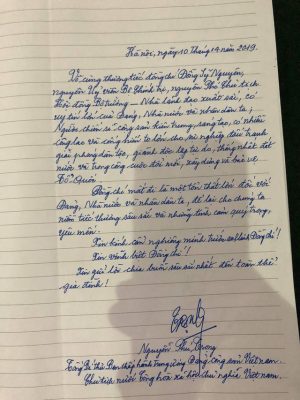 Hà Nội, ngày 10 tháng 4 năm 2019.
Vô cùng thương tiếc đồng chí Đồng Sỹ Nguyên,
nguyên Uỷ viên Bộ Chính trị, nguyên Phó Chủ tịch
Hội đồng Bộ trưởng - Nhà lãnh đạo xuất sắc, có
uy tín lớn của Đảng, Nhà nước và nhân dân ta;
Người chiến sĩ cộng sản kiên trung, sáng tạo, có nhiều
công lao và cống hiến to lớn cho sự nghiệp đấu tranh
giải phóng dân tộc, giành độc lập tự do, thống nhất đất
nước và trong công cuộc đổi mới, xây dựng và bảo vệ
Tổ Quốc.
Đồng chí mất đi là một tổn thất lớn đối với
Đảng, Nhà nước và nhân dân ta, để lại cho chúng ta
niềm tiếc thương sâu sắc và những tình cảm quý trọng,
yêu mến.
Xin kính cẩn nghiêng mình trước anh linh Đồng chí!
Xin vĩnh biệt Đồng chí!
Xin gửi lời chia buồn sâu sắc nhất đến toàn thể
gia đình!
Nguyễn Phú Trọng
Tổng Bí thư Ban Chấp hành Trung ương Đảng Cộng sản Việt Nam.
Chủ tịch nước Cộng hòa xã hội chủ nghĩa Việt Nam.